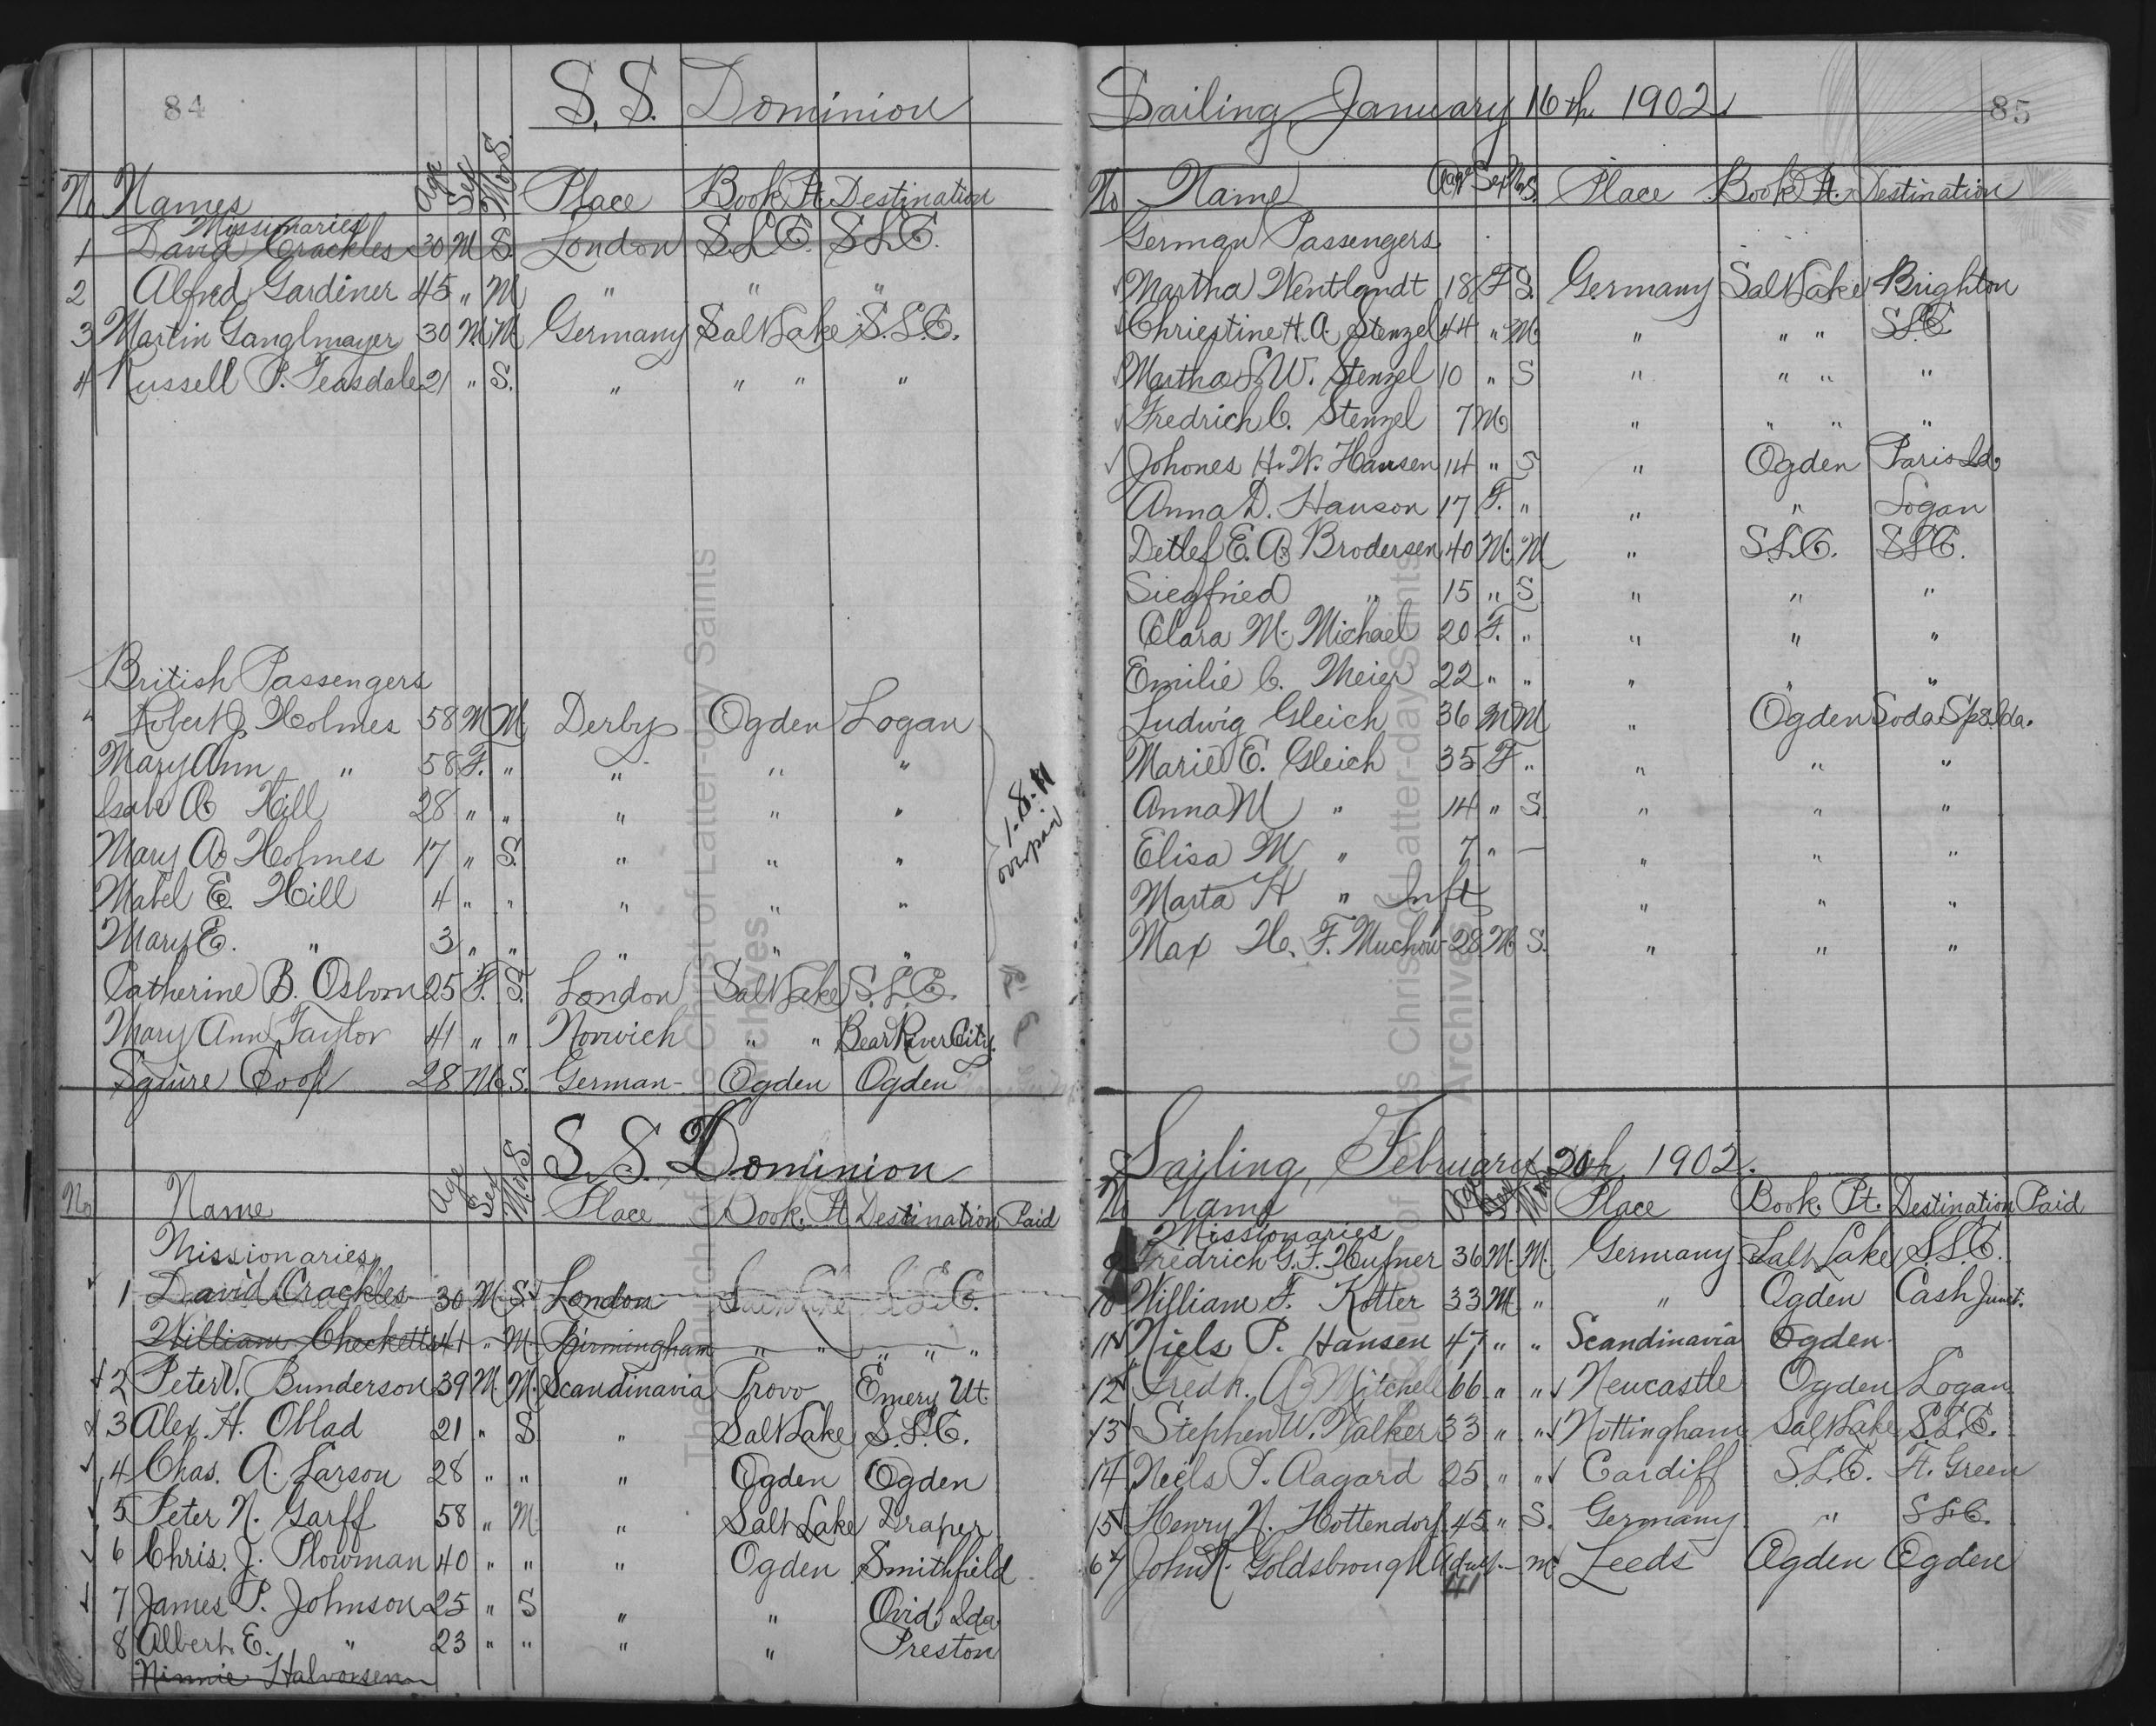 84
S. S. Dominion
No Names Age Sex M or S. Place Book. Pt. Destination
Missionaries
1 David Crackles 30 M S. London S.L.C. S.L.C.
2 Alfred Gardiner 45 " M " " "
3 Martin Ganglmayer 30 M. M Germany Salt Lake S.L.C.
4 Russell P. Teasdale 21 " S. " " " "
British Passengers
Robert J. Holmes 58 M M Derby Ogden Logan
Mary Ann " 58 F. " " " "
A Hill 28 " " " " "
Mary A. Holmes 17 " S. " " "
Mabel E. Hill 4 " " " " "
Mary E. " 3 " " " " "
1-8-11
overpaid
Catherine B. Osborn 25 F. S. London Salt Lake S.L.C.
Mary Ann Taylor 41 " " Norwich " " Bear River City.
Squire Coop 28 M S. German- Ogden Ogden
S. S. Dominion
No Name Age Sex M. or S. Place Book. Pt Destination Paid
Missionaries
1 David Crackles 30 M. S. London Salt Lake S.L.C.
William Checketts 41 " M. Birmingham " " " " "
2 Peter V. Bunderson 39 M. M. Scandinavia Provo Emery Ut.
3 Alex. H. Oblad 21 " S " Salt Lake S.L.C.
4 Chas. A. Larson 28 " " " Ogden Ogden
5 Peter N. Garff 58 " M. " Salt Lake Draper
6 Chris. J. Plowman 40 " " " Ogden Smithfield
7 James P. Johnson 25 " S " " Ovid, Ida
8 Albert E. " 23 " " " " Preston
Minnie Halvorsen
Sailing, January 16th, 1902.
85
No Name Age Sex M or S. Place Book Pt. Destination
German Passengers.
Martha Wentlandt 18 F S. Germany Salt Lake Brighton
Chriestine H. A. Stenzel 44 " M. " " " S.L.C.
Martha S. W. Stenzel 10 " S " " " "
Fredrich C. Stenzel 7 M " " " "
Johones H. W. Hansen 14 " S " Ogden Paris Ida,
Anna D. Hanson 17 F. " " " Logan
Detlef E. A. Brodersen 40 M. M " S.L.C. S.L.C.
Siegfried " 15 " S " " "
Clara M. Michael 20 F. " " " "
Emilie C. Meier 22 " " " " "
Ludwig Gleich 36 M M " Ogden Soda Sps. Ida.
Marie E. Gleich 35 F " " " "
Anna M " 14 " S. " " "
Elisa M " 7 " — " " "
Marta H " Inft " " "
Max H. F. Muchow 28 M S. " " "
Sailing, February 20th, 1902.
No Name Age Sex M or S Place Book. Pt. Destination Paid
Missionaries
9 Fredrich G. F. Hufner 36 M. M. Germany Salt Lake S.L.C.
10 William F. Kotter 33 M " " Ogden Cash Junct.
11 Niels P. Hansen 47 " " Scandinavia Ogden
12 Fredk. A. Mitchell 66 " " Newcastle Ogden Logan
13 Stephen W. Walker 33 " " Nottingham Salt Lake S.L.C.
14 Niels P. Aagard 25 " " Cardiff S.L.C. Ft. Green
15 Henry N. Hottendorf. 45 " S. Germany " S.L.C.
John Goldsbrough Adult - m Leeds Ogden Ogden
41
The Church of Jesus Christ of Latter-day Saints
Archives
The Church of Jesus Christ of Latter-day Saints
Archives